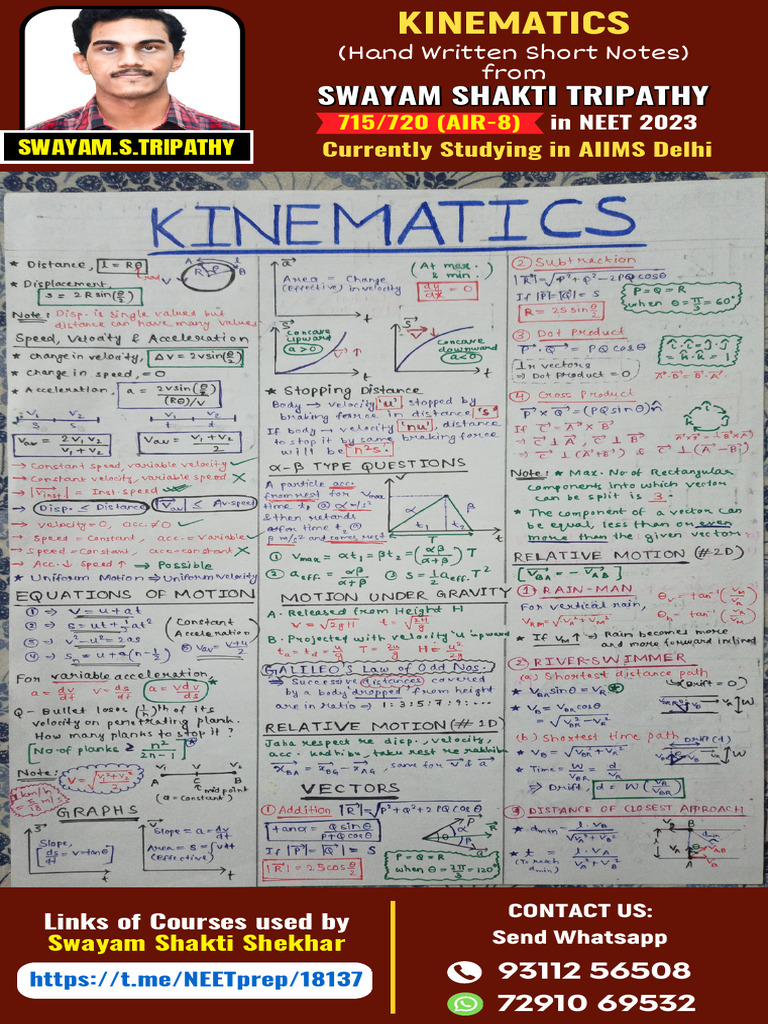 KINEMATICS
(Hand Written Short Notes)
from
SWAYAM SHAKTI TRIPATHY
715/720 (AIR-8) in NEET 2023
Currently Studying in AIIMS Delhi
SWAYAM.S.TRIPATHY
KINEMATICS
★ Distance, l = Rθ
rad
★ Displacement,
s = 2R sin(θ/2)
Note: Disp. is single values but
distance can have many values
Speed, Velocity & Acceleration
★ change in velocity, ΔV = 2v sin(θ/2)
★ change in speed, = 0
★ Acceleration, a = 2v sin(θ/2) / (Rθ)/v
Vav = 2V1V2 / V1+V2
Vav = V1+V2 / 2
→ Constant speed, variable velocity ✓
→ Constant velocity, variable speed ✗
→ |Vinst| = Inst. speed
→ Disp. ≤ Distance, |Vav| ≤ Av. speed
→ velocity = 0, acc. ≠ 0 ✓
→ Speed = Constant, acc. = Variable ✓
→ Speed = Constant, acc = constant ✗
→ Acc. ↓ Speed ↑ → Possible
★ Uniform Motion ⇒ Uniform Velocity
EQUATIONS OF MOTION
① ⇒ v = u + at
② ⇒ s = ut + ½at²
③ ⇒ v² - u² = 2as
④ ⇒ sn = u + a(n - ½)
(Constant Acceleration)
⑤ Vav = v+u / 2
For variable acceleration,
a = dv/dt v = ds/dt a = vdv/ds
Q - Bullet loses (1/n)th of its
velocity on penetrating plank.
How many planks to stop it?
No. of planks ≥ n² / 2n-1
Note: V = √(V1²+V2² / 2)
1 km/h = 5/18 m/s
A C B
mid point
(a = constant)
GRAPHS
Slope, ds/dt = v = tanθ
Slope = a = dv/dt
Area = s = ∫vdt
(Effective)
Area = Change
(effective) in velocity
(At max. & min.)
dy/dx = 0
concave upward
a > 0
Concave downward
a < 0
★ Stopping Distance
Body → velocity 'u' stopped by
braking force in distance 's'
If body → velocity 'nu', distance
to stop it by same braking force
will be n²s.
α-β TYPE QUESTIONS
A particle acc.
from rest for
time t1 @ α m/s²
Vmax
& then retards
for time t2 @
β m/s² and comes rest
① Vmax = αt1 = βt2 = (αβ / α+β) T
② aeff. = αβ / α+β ③ s = ½ aeff. T²
MOTION UNDER GRAVITY
A. Released from Height H
v = √2gH t = √(2H/g)
B. Projected with velocity 'u' upward
ta = td = u/g T = 2u/g H = u²/2g
GALILEO's Law of Odd Nos.
⇒ Successive distances covered
by a body dropped from height
are in ratio ⇒ 1:3:5:7:9:...
RELATIVE MOTION (# 1D)
xBA = xBG - xAG, same for v & a
VECTORS
① Addition |R| = √P²+Q²+2PQ cosθ
tanα = Q sinθ / P+Q cosθ
If |P| = |Q| = S
|R| = 2S cos θ/2
P = Q = R
when θ = 2π/3 = 120°
② Subtraction
|R| = √P²+Q²-2PQ cosθ
If |P| = |Q| = S
R = 2S sin θ/2
P = Q = R
when θ = π/3 = 60°
③ Dot Product
P · Q = PQ cosθ
⊥r vectors
⇒ Dot Product = 0
î·î = ĵ·ĵ = k̂·k̂ = 1
A·B = B·A
④ Cross Product
P × Q = (PQ sinθ) n̂
If C = A × B
⇒ C ⊥ A, C ⊥ B
⇒ C ⊥ (A+B) & C ⊥ (A-B)
Note: ★ Max. No of Rectangular
components into which vector
can be split is 3.
★ The component of a vector can
be equal, less than or even
more than the given vector
RELATIVE MOTION (#2D)
[VBA = -VAB]
① RAIN-MAN
For vertical rain,
★ If VM ↑ ⇒ Rain becomes more
and more forward inclined
② RIVER-SWIMMER
(a) Shortest distance path
(Drift = 0)
★ VBR sinθ = VR
★ VB = VBR cosθ
= √VBR² - VR²
(b) Shortest time path
Drift (d)
★ VB = √VBR² + VR²
★ Time = W/VBR = d/VR
⇒ Drift, d = W(VR/VBR)
③ DISTANCE OF CLOSEST APPROACH
★ dmin = l·VB / √VA²+VB²
★ t = l·VA / VA²+VB²
(To reach dmin)
Links of Courses used by
Swayam Shakti Shekhar
https://t.me/NEETprep/18137
CONTACT US:
Send Whatsapp
93112 56508
72910 69532